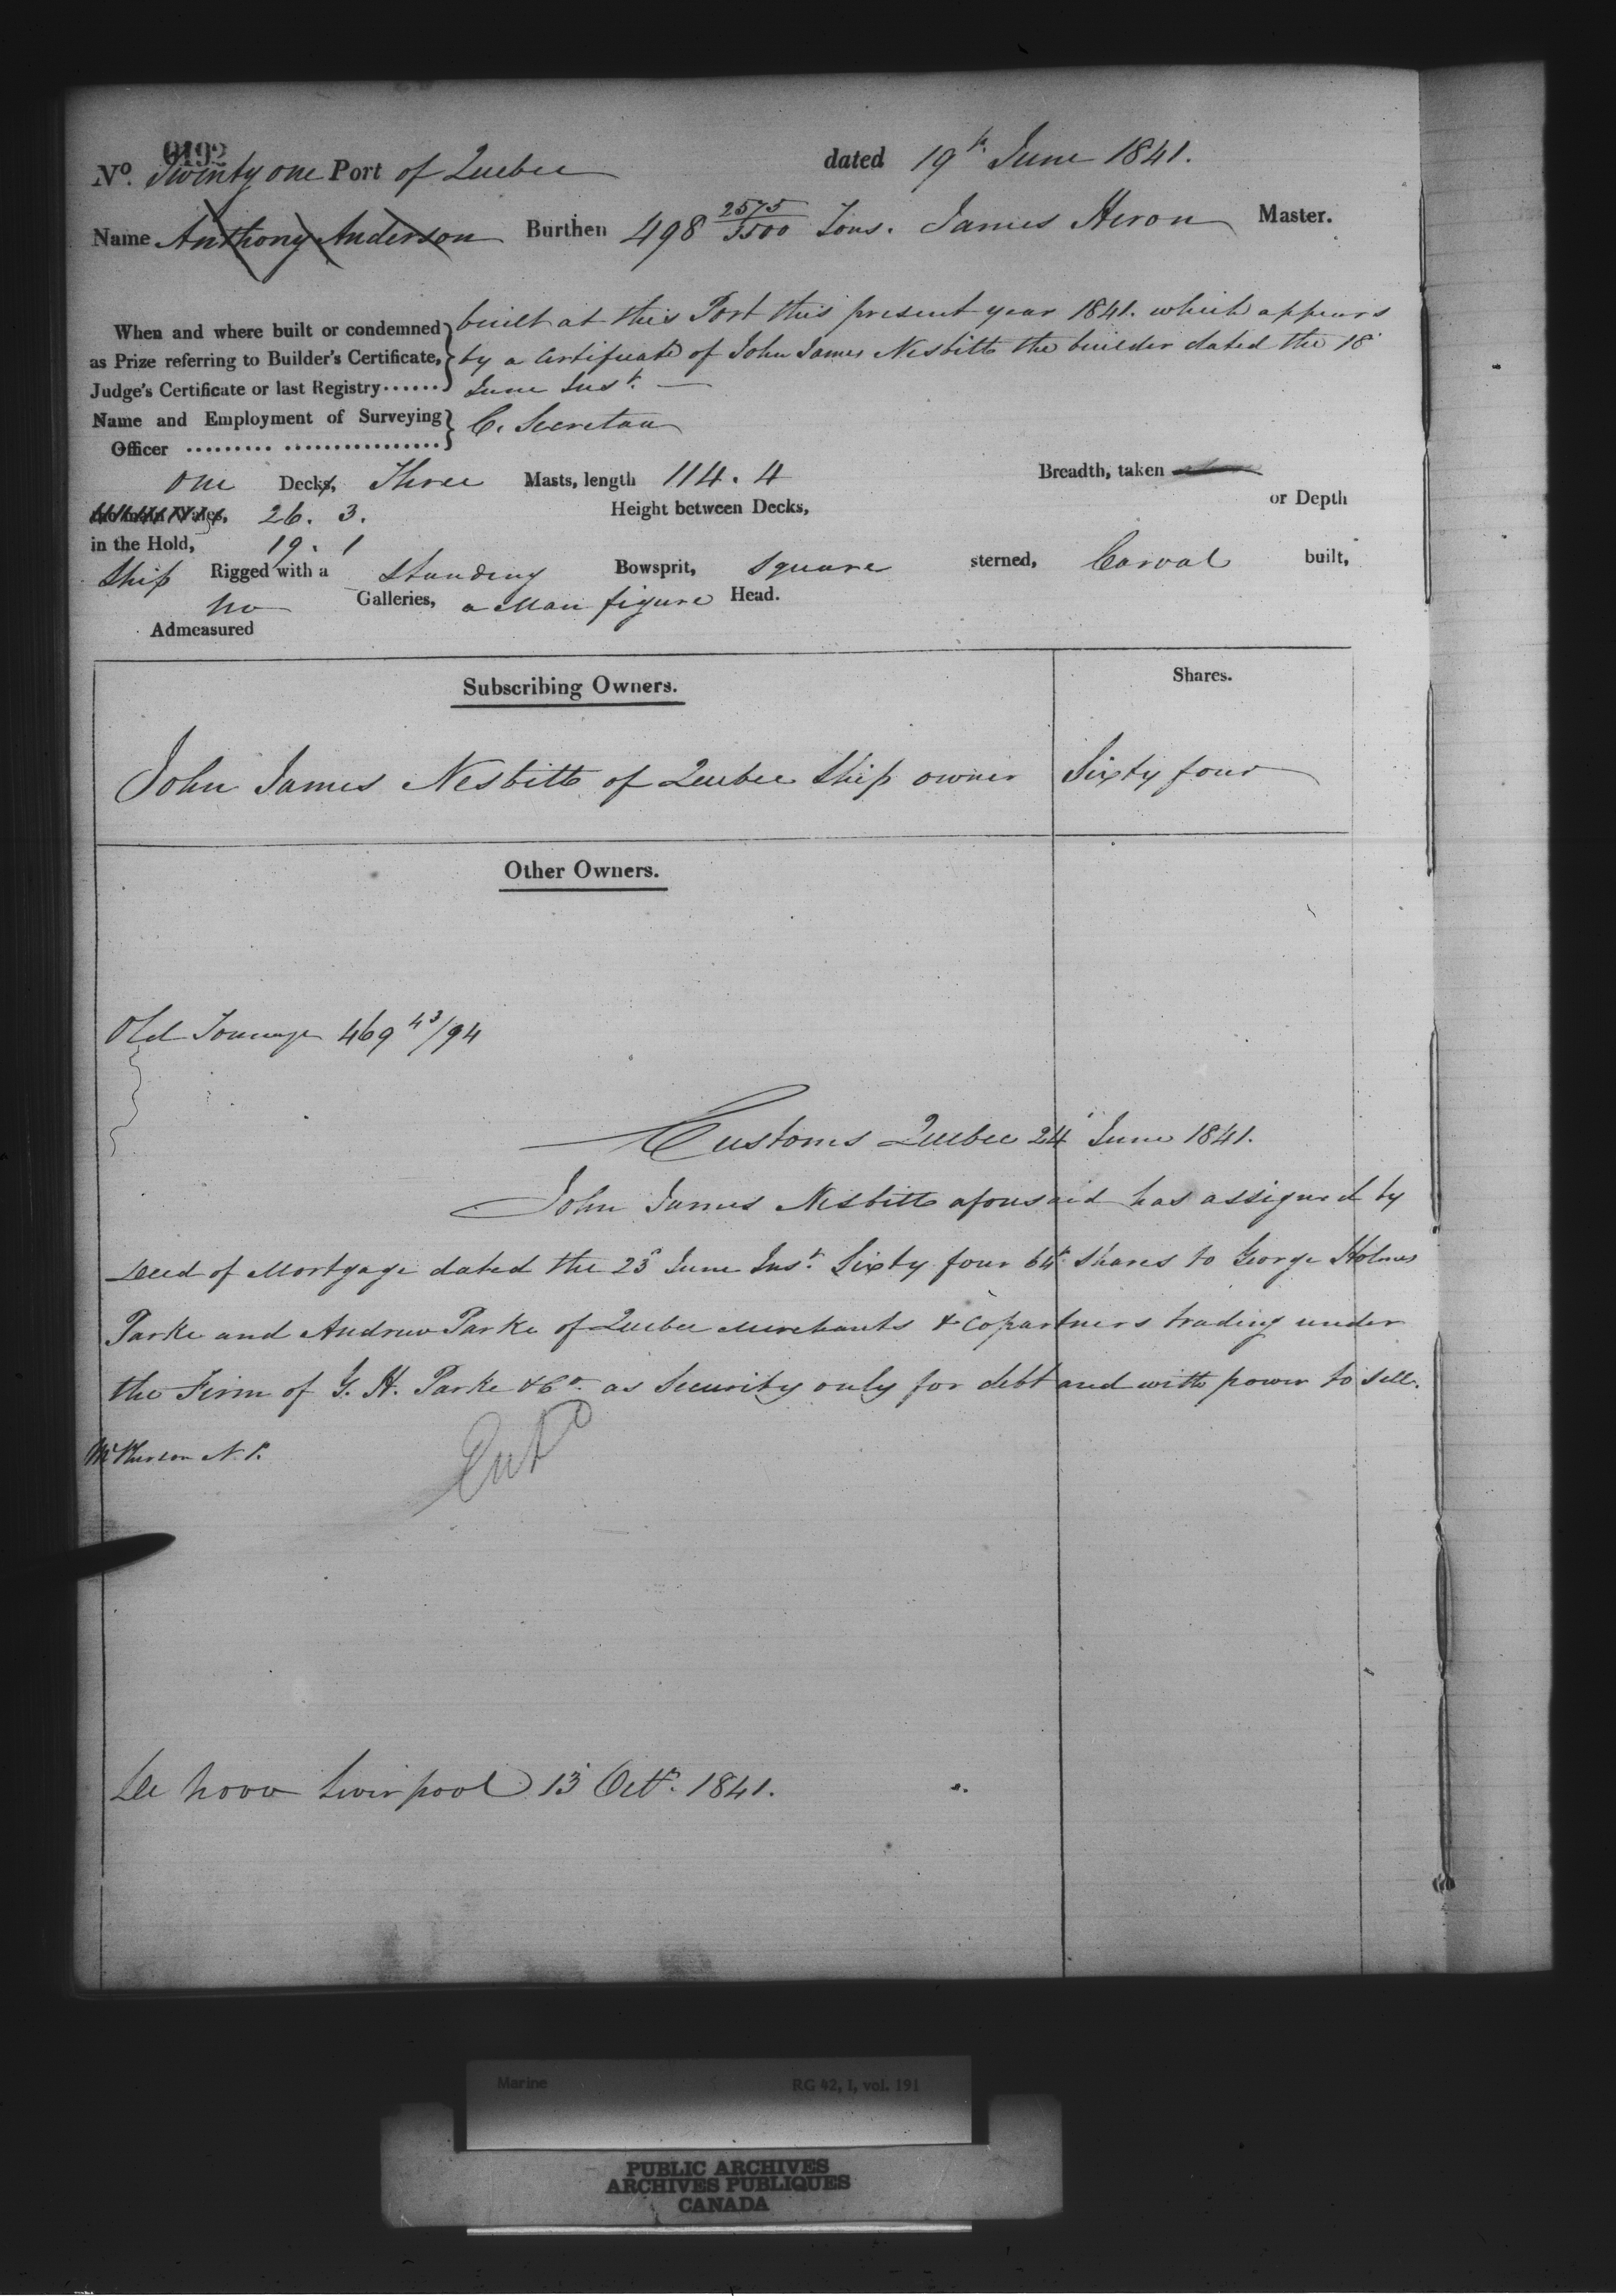 0192
No. Twenty one Port of Quebec dated 19th June 1841.
Name Anthony Anderson Burthen 498 2575/3500 Tons. James Heron Master.
When and where built or condemned as Prize referring to Builder's Certificate, Judge's Certificate or last Registry......
built at this Port this present year 1841. which appears
by a Certificate of John James Nesbitt the builder dated the 18
June Inst. —
Name and Employment of Surveying Officer ......... ................
C. Secretan
one Decks, Three Masts, length 114.4 Breadth, taken
Wales, 26. 3. Height between Decks, or Depth
in the Hold, 19. 1
Ship Rigged with a Standing Bowsprit, Square sterned, Carval built,
no Galleries, a Man figure Head.
Admeasured
Subscribing Owners. Shares.
John James Nesbitt of Quebec Ship owner Sixty four
Other Owners.
Old Tonnage 469 43/94
Customs Quebec 24 June 1841.
John James Nesbitt aforesaid has assigned by
Deed of Mortgage dated the 23d June Inst. Sixty four 64th Shares to George Holmes
Parke and Andrew Parke of Quebec Merchants & Copartners trading under
the Firm of G. H. Parke & Co. as Security only for debt and with power to sell.
McPherson N.P.
De novo Liverpool 13 Octr. 1841.
Marine RG 42, I, vol. 191
PUBLIC ARCHIVES
ARCHIVES PUBLIQUES
CANADA